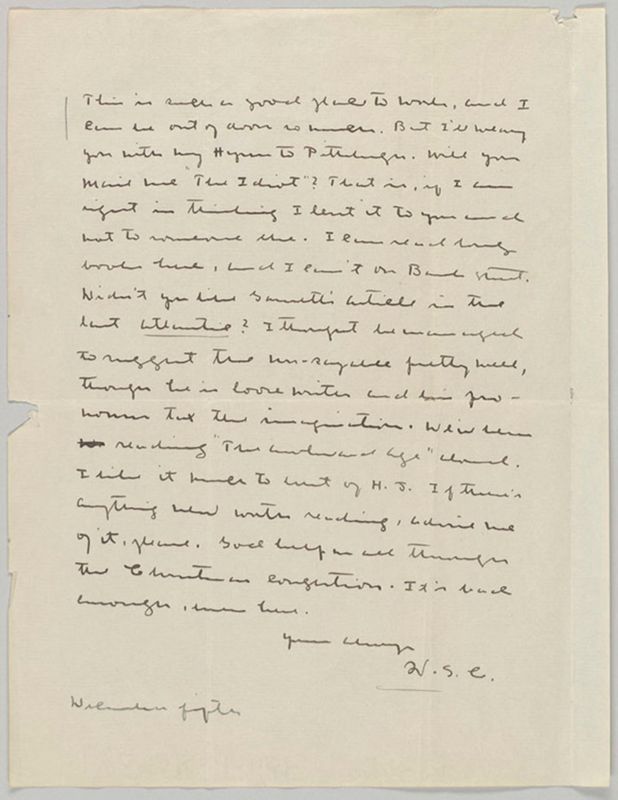 This is such a good place to work, and I
can be out of doors so much. But I'll weary
you with my Hymn to Pittsburgh. Will you
mail me "The Idiot"? That is, if I am
right in thinking I lent it to you and
not to someone else. I can read long
books here, and I can't on Bank street.
Didn't you like Garnett's article in the
last Atlantic? I thought he managed
to suggest the un-sayable pretty well,
though he is loose writer and his pro-
nouns tax the imagination. We've been
reading "The Awkward Age" aloud.
I like it much best of H. J. If there's
anything new worth reading, advise me
of it, please. God help us all through
the Christmas congestion. It's bad
enough, even here.
Yours always
W. S. C.
December fifth